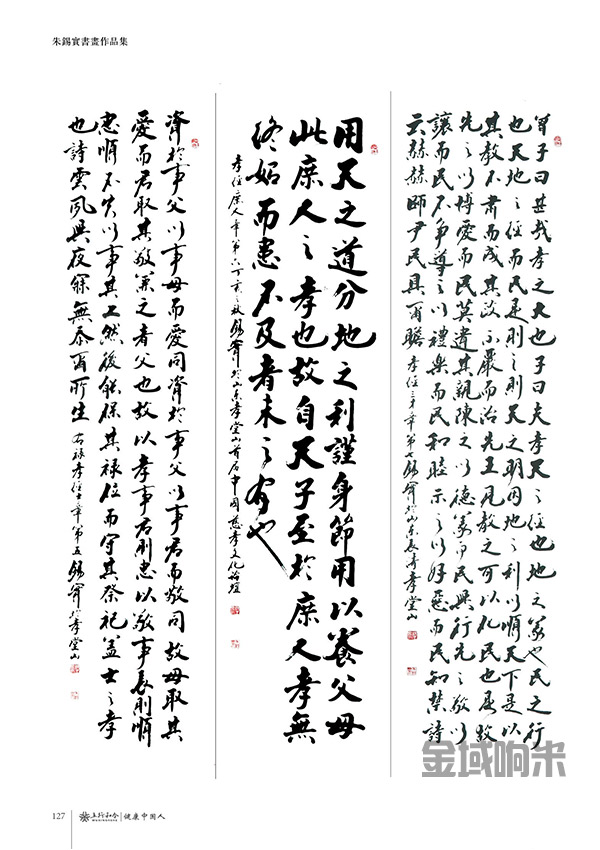 朱錫實書畫作品集
曾子曰甚哉孝之大也子曰夫孝天之經也地之義也民之行
也天地之經而民是則之則天之明因地之利以順天下是以
其教不肅而成其政不嚴而治先王見教之可以化民也是故
先之以博愛而民莫遺其親陳之以德義而民興行先之敬以
讓而民不爭導之以禮樂而民和睦示之以好惡而民知禁詩
云赫赫師尹民具爾瞻 孝經三才章第七錫實於山東長清孝堂山
用天之道分地之利謹身節用以養父母
此庶人之孝也故自天子至於庶人孝無
終始而患不及者未之有也
孝經庶人章第六丁亥之秋錫實於山東孝堂山首届中國慈孝文化論壇
資於事父以事母而愛同資於事父以事君而敬同故母取其
愛而君取其敬兼之者父也故以孝事君則忠以敬事長則順
忠順不失以事其上然後能保其祿位而守其祭祀蓋士之孝
也詩雲夙興夜寐無忝爾所生 右録孝經士章第五錫實於孝堂山
金域响来
127 上行和合 健康中国人